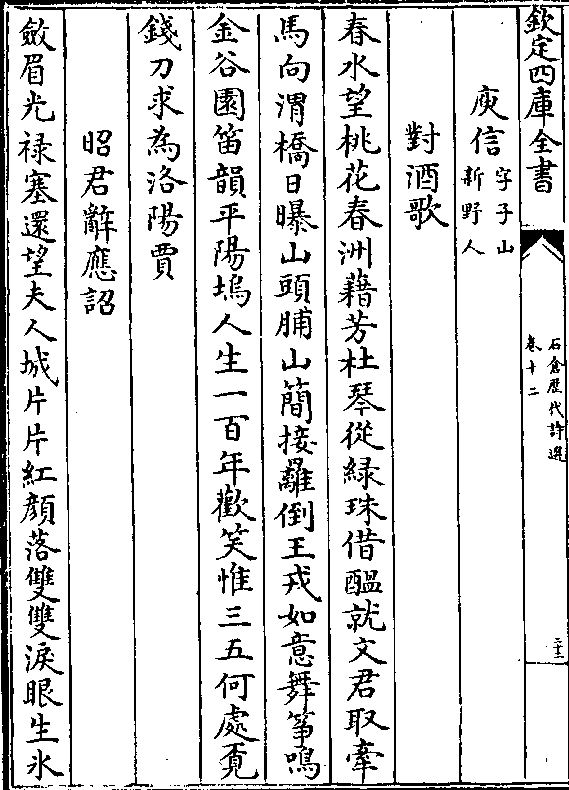 欽定四庫全書
石倉歴代詩選
卷十二
二十二
庾信 字子山
新野人
對酒歌
春水望桃花春洲藉芳杜琴從緑珠借醞就文君取牽
馬向渭橋日曝山頭脯山簡接䍦倒王戎如意舞箏鳴
金谷園笛韻平陽塢人生一百年歡笑惟三五何處覔
錢刀求為洛陽賈
昭君辭應詔
斂眉光禄塞還望夫人城片片紅顔落雙雙淚眼生氷